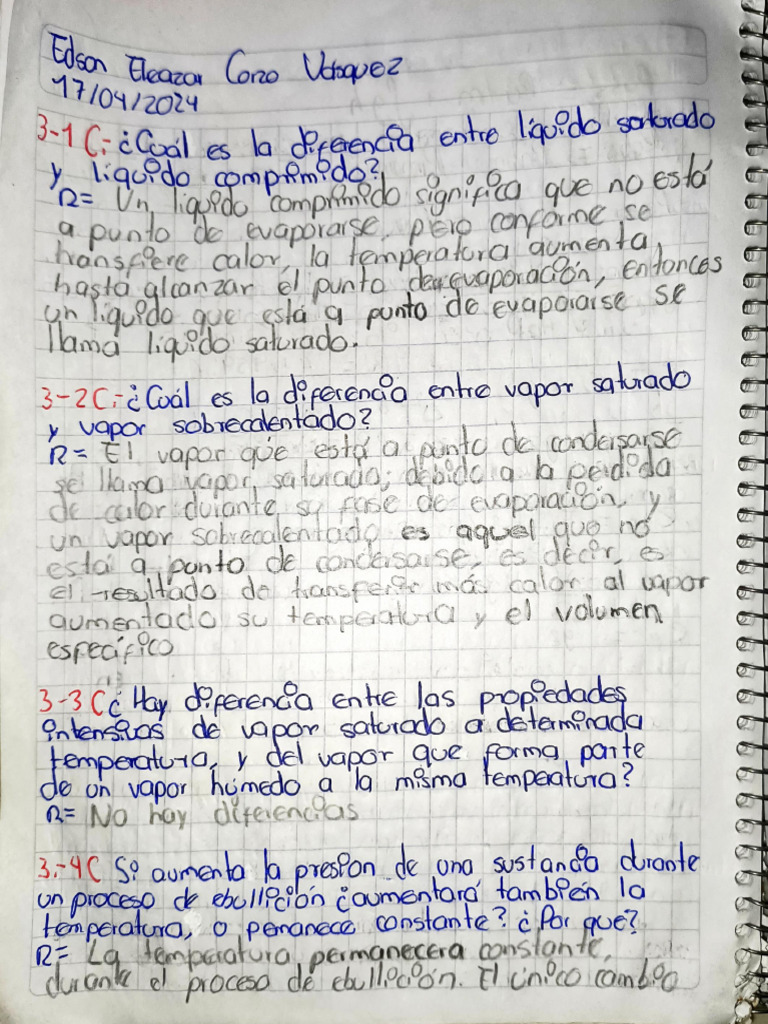 Edson Eleazar Corzo Vásquez
17/04/2024
3-1 C.- ¿Cuál es la diferencia entre líquido saturado
y líquido comprimido?
R= Un líquido comprimido significa que no está
a punto de evaporarse, pero conforme se
transfiere calor, la temperatura aumenta,
hasta alcanzar el punto de evaporación, entonces
un líquido que está a punto de evaporarse se
llama líquido saturado.
3-2 C.- ¿Cuál es la diferencia entre vapor saturado
y vapor sobrecalentado?
R= El vapor que está a punto de condensarse
se llama vapor saturado; debido a la perdida
de calor durante su fase de evaporación, y
un vapor sobrecalentado es aquel que no
está a punto de condensarse, es decir, es
el resultado de transferir más calor al vapor
aumentado su temperatura y el volumen
específico
3-3 C ¿Hay diferencia entre las propiedades
intensivas de vapor saturado a determinada
temperatura, y del vapor que forma parte
de un vapor húmedo a la misma temperatura?
R= No hay diferencias
3.-4 C Si aumenta la presion de una sustancia durante
un proceso de ebullición ¿aumentará también la
temperatura, o permanece constante? ¿Por que?
R= La temperatura permanecera constante,
durante el proceso de ebullición. El único cambio